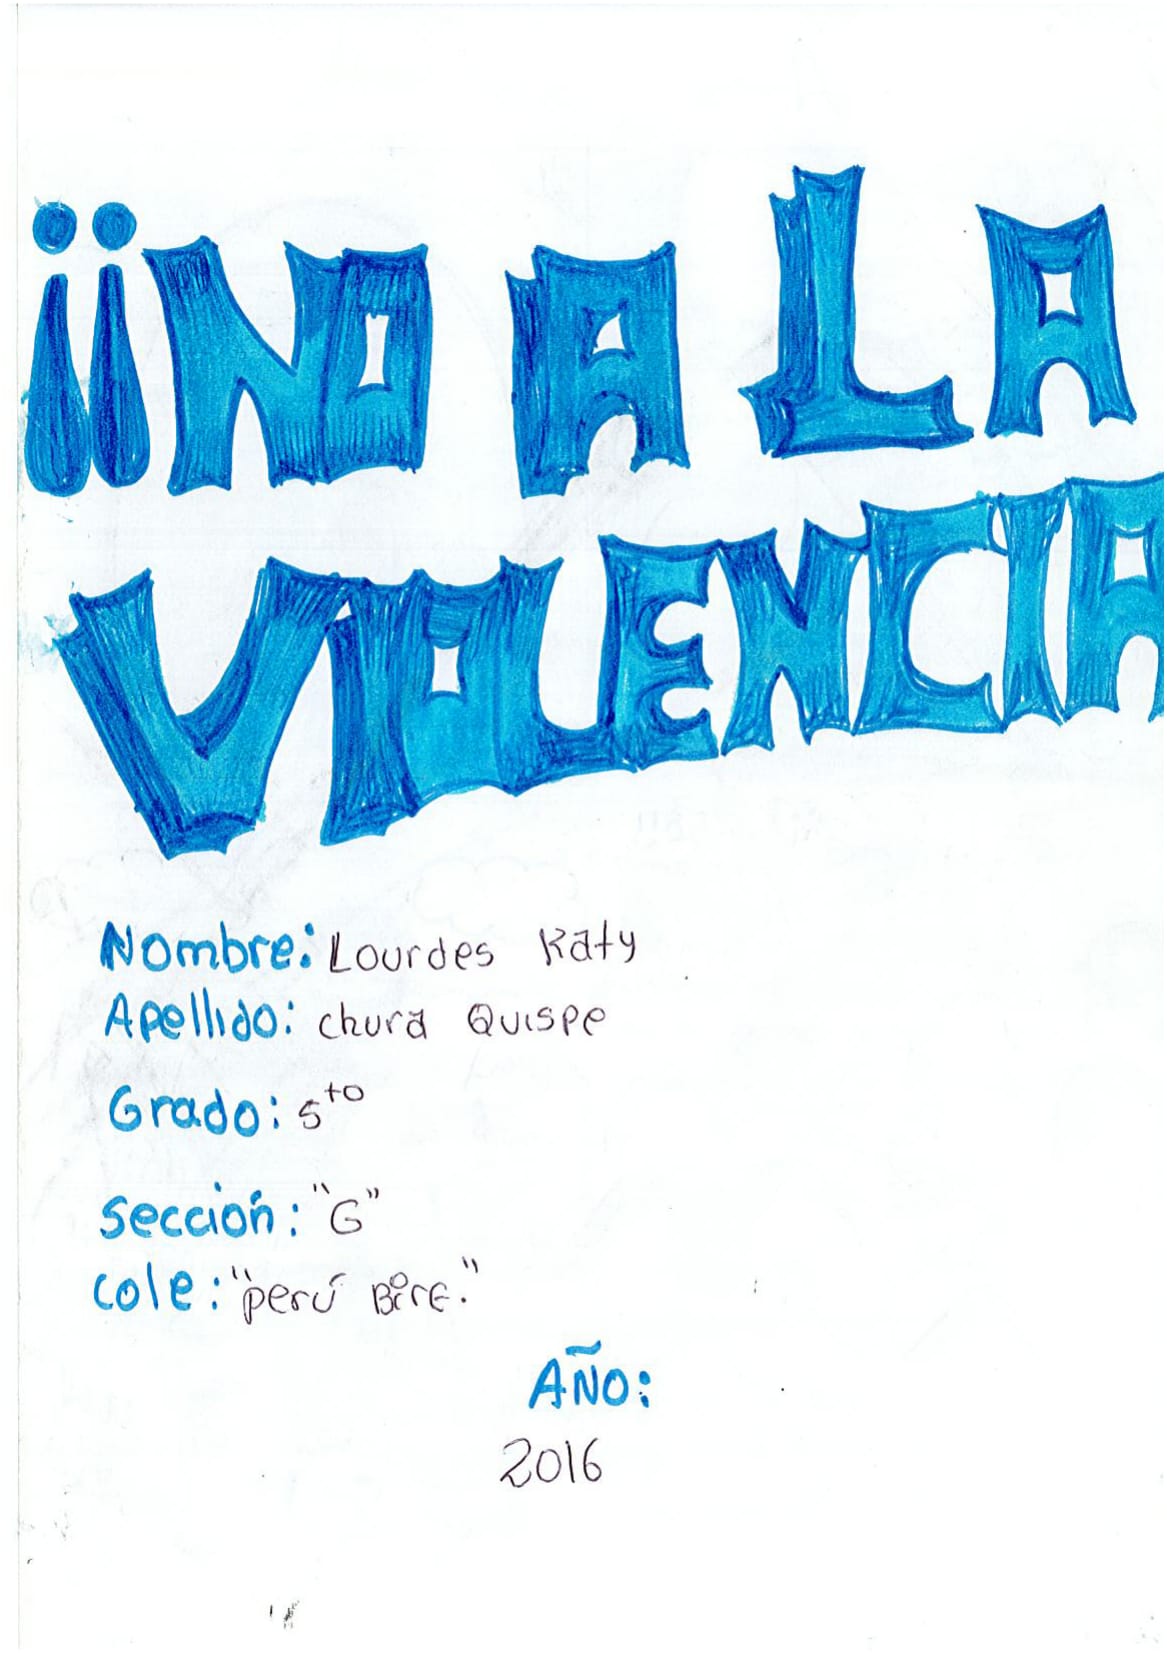 ¡¡NO A LA
VIOLENCIA
Nombre: Lourdes Katy
Apellido: chura Quispe
Grado: 5to
sección: "G"
cole: "perú Birf."
AÑO:
2016